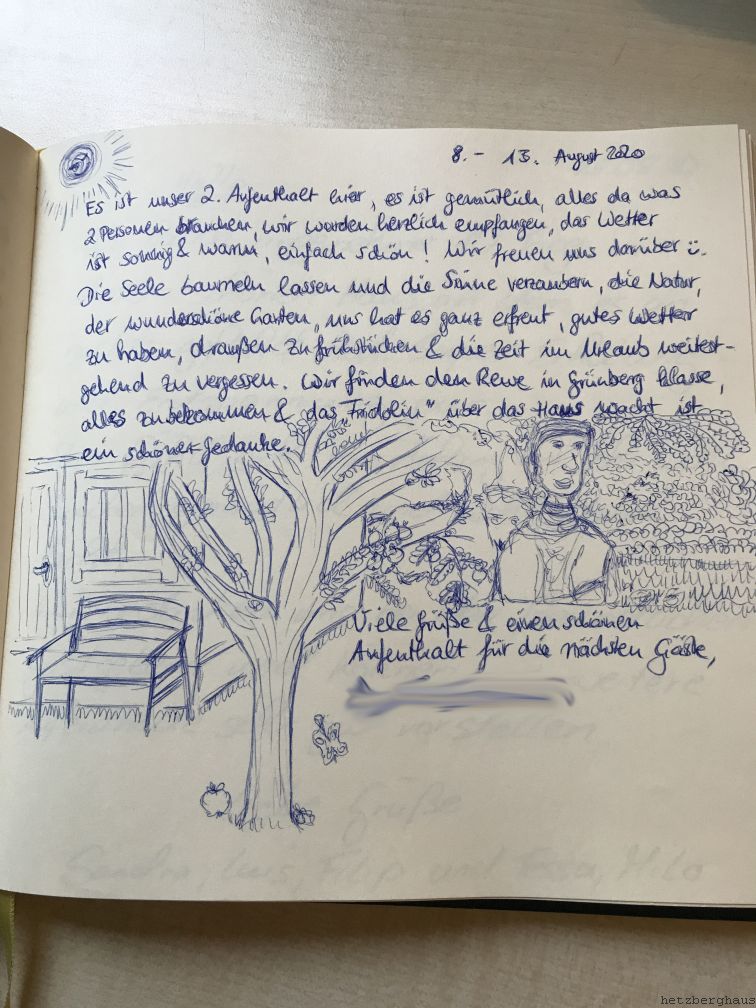 8. - 13. August 2020
Es ist unser 2. Aufenthalt hier, es ist gemütlich, alles da was
2 Personen brauchen, wir worden herzlich empfangen, das Wetter
ist sonnig & warm, einfach schön! Wir freuen uns darüber :)
Die Seele baumeln lassen und die Sinne verzaubern, die Natur,
der wunderschöne Garten, uns hat es ganz erfreut, gutes Wetter
zu haben, draußen zu frühstücken & die Zeit im Urlaub weitest-
gehend zu vergessen. Wir finden den Rewe in Grünberg klasse,
alles zu bekommen & das "Fridolin" über das Haus wacht ist
ein schöner Gedanke.
Viele Grüße & einen schönen
Aufenthalt für die nächsten Gäste,
vorstellen
Grüße
Sandra, Filip und Milo
hetzberghaus